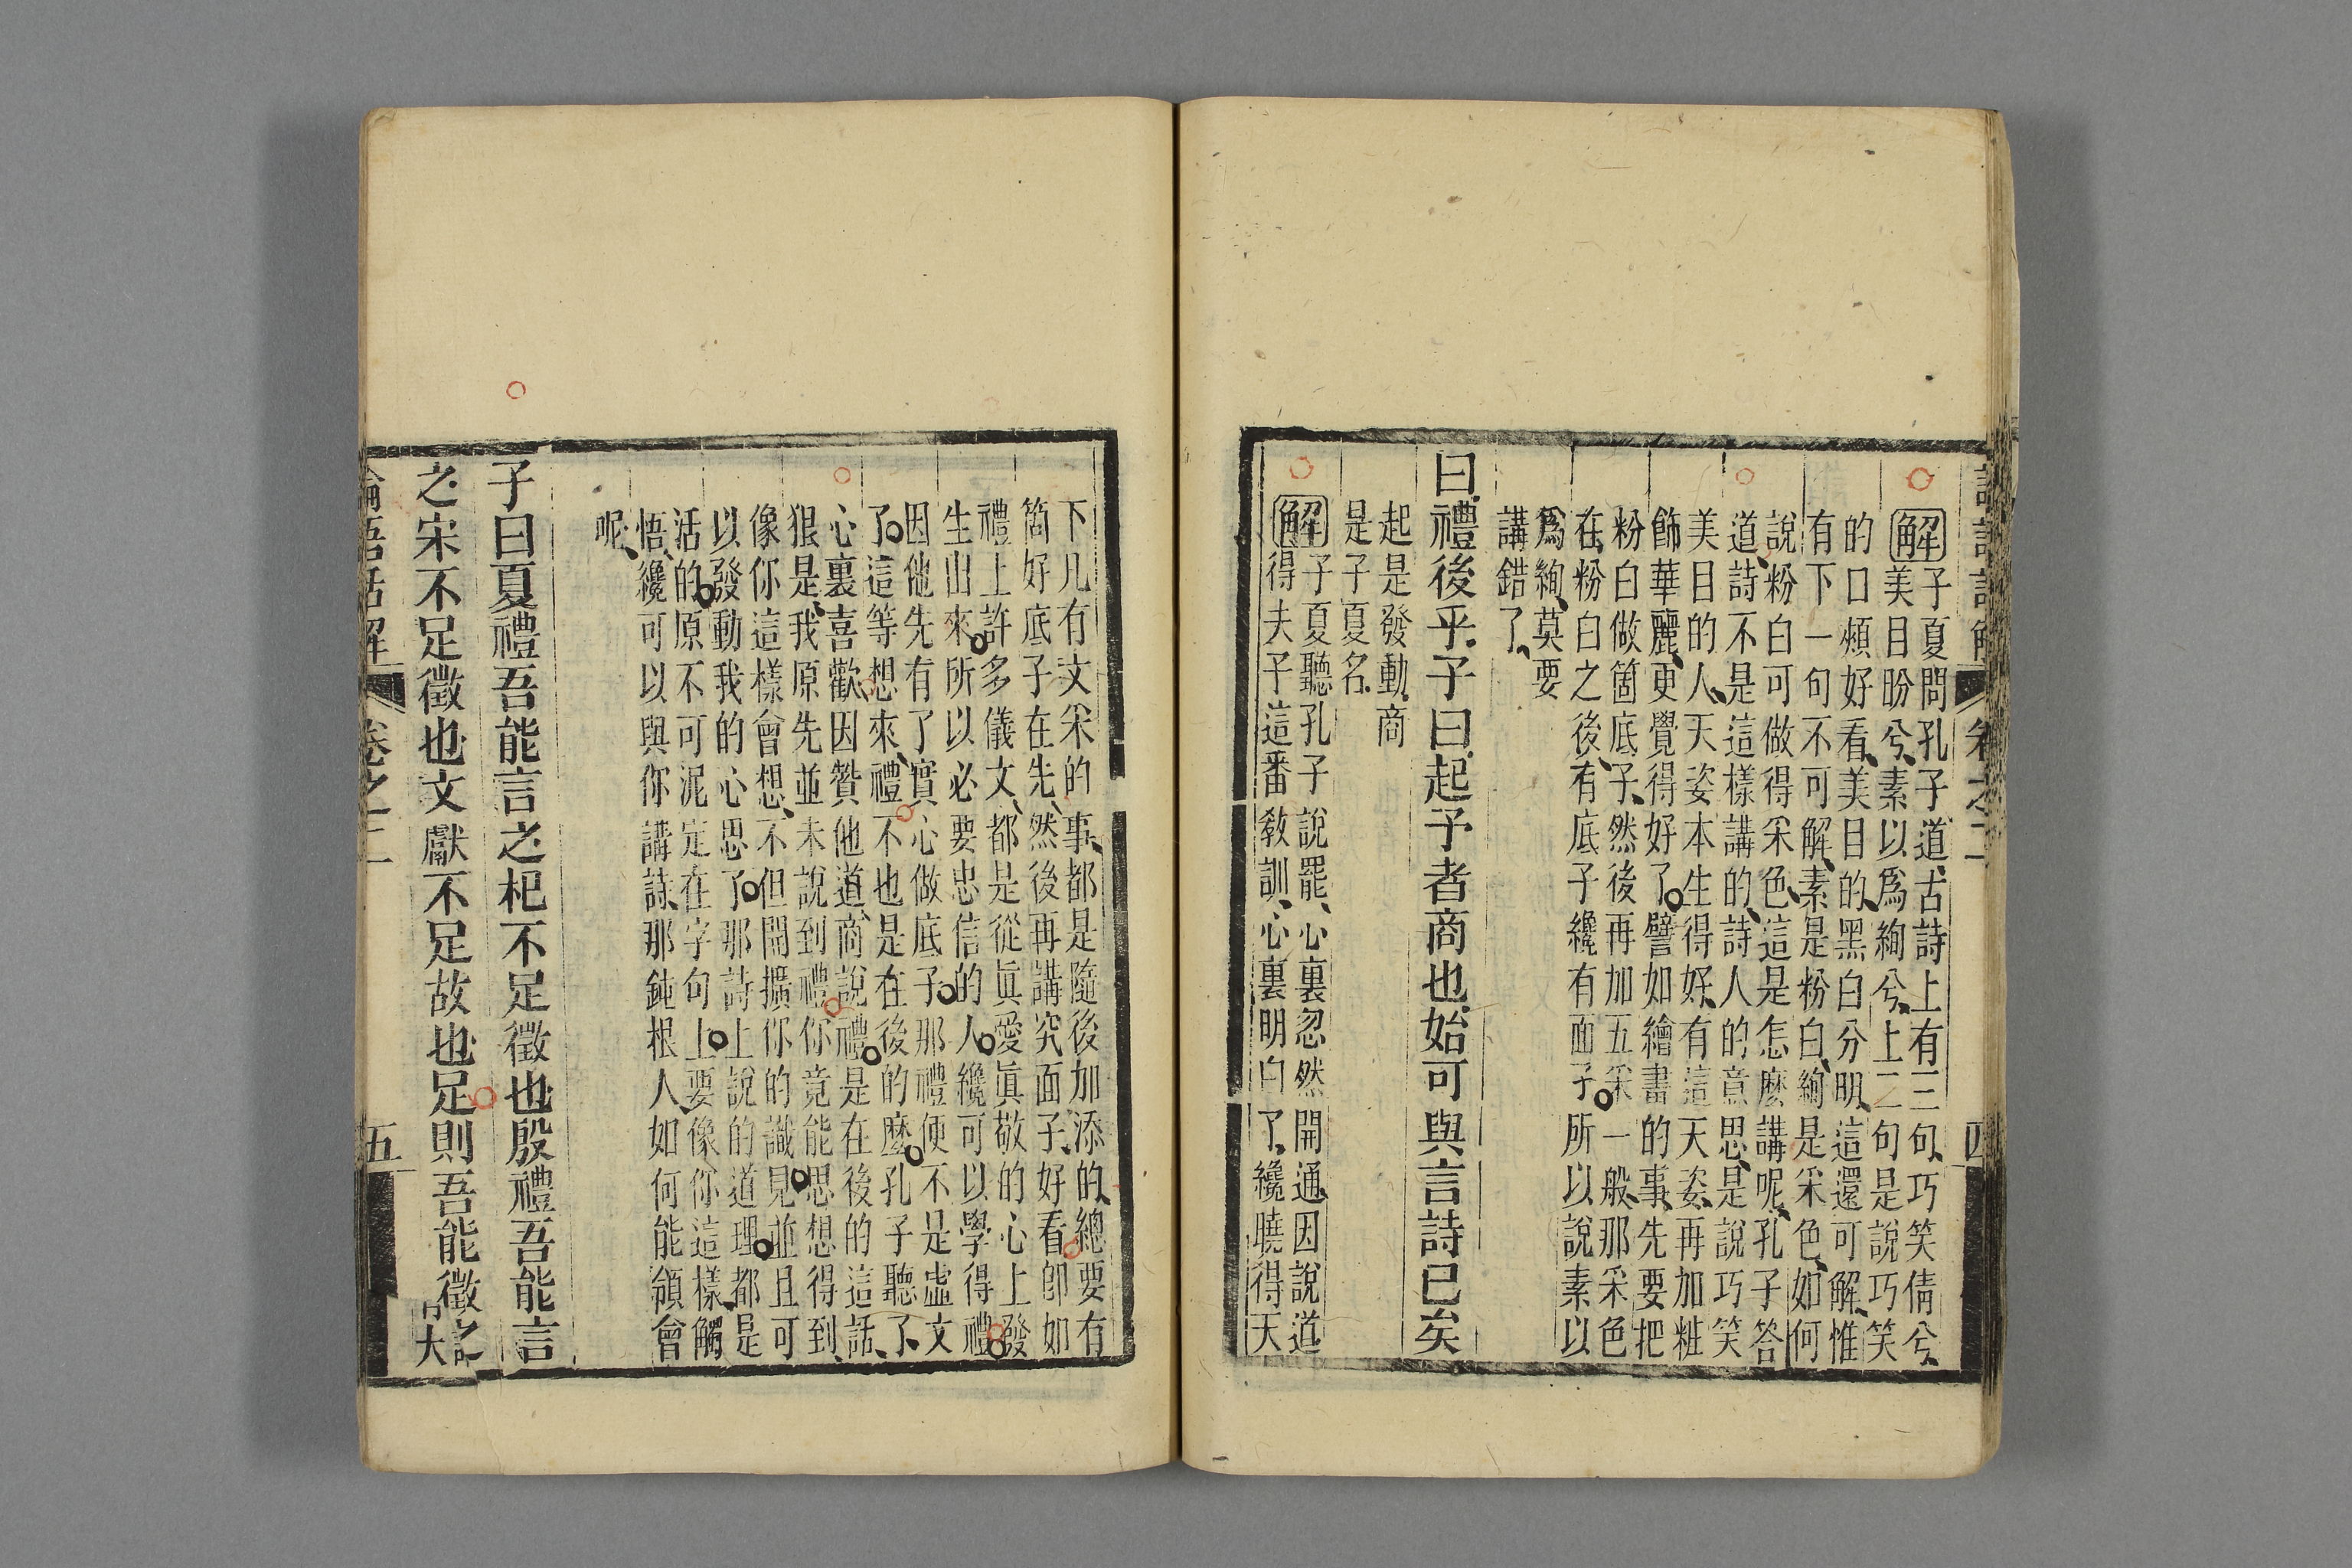 論語話解 卷之二 四
解 子夏問孔子道、古詩上有三句、巧笑倩兮、
美目盼兮、素以爲絢兮、上二句是說巧笑
的口頰好看、美目的、黑白分明、這還可解、惟
有下一句不可解、素是粉白、絢是采色、如何
說粉白可做得采色、這是怎麽講呢、孔子答
道、詩不是這樣講的、詩人的意思、是說巧笑
美目的人、天姿本生得好、有這天姿、再加粧
飾華麗、更覺得好了。譬如繪畫的事、先要把
粉白做箇底子、然後再加五采一般、那采色
在粉白之後、有底子纔有面子。所以說素以
爲絢、莫要
講錯了、
曰禮後乎子曰起予者商也始可與言詩已矣
起是發動、商
是子夏名、
解 子夏聽孔子說罷、心裏忽然開通、因說道
得夫子這番教訓、心裏明白了、纔曉得天
下凡有文采的事、都是隨後加添的、總要有
箇好底子在先、然後再講究面子、好看、卽如
禮上許多儀文、都是從眞愛眞敬的心上發
生出來。所以必要忠信的人。纔可以學得禮。
因他先有了實心做底子。那禮便不是虛文
了。這等想來、禮不也是在後的麽。孔子聽了、
心裏喜歡、因贊他道、商說禮。是在後的這話、
狠是、我原先並未說到禮、你竟能思想得到、
像你這樣會想、不但開擴你的識見。並且可
以發動我的心思了。那詩上說的道理。都是
活的。原不可泥定在字句上。要像你這樣、觸
悟、纔可以與你講詩、那鈍根人、如何能領會
呢、
子曰夏禮吾能言之杞不足徵也殷禮吾能言
之宋不足徵也文獻不足故也足則吾能徵之
論語話解 卷之二 五